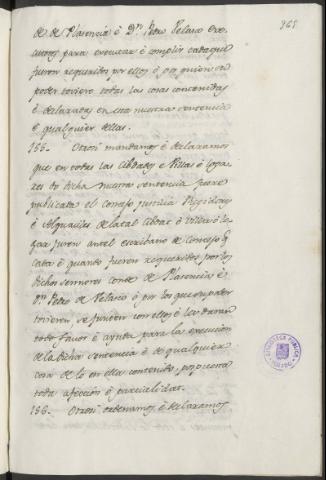 365
de de Plasencia é Dn. Pedro Velasco exe-
cutores para executar é complir cada que
fueren requeridos por ellos ó por quien su
poder toviere todas las cosas contenidas
é declaradas en esta nuestra sentencia
é qualquier dellas.
155. Otrosi mandamos é declaramos
que en todas las cibdades é Villas é loga-
res do dicha nuestra sentencia fuere
publicada el Concejo justicia Regidores
é Alguaciles de la tal cibdat ó Villa ó lo-
gar juren antel escribano de Concejo q
cada é quando fueren requeridos por los
dichos sennores conde de Plasencia é
Dn. Pedro de Velasco ó por los que su poder
tovieren, se junten con ellos é les daran
todo favor é ayuda para la execucion
de la dicha sentencia é de qualquiera
cosa de lo en ella contenido, pospuesta
toda afeccion é parcialidat.
156. Otrosi ordenamos é declaramos
BIBLIOTECA PUBLICA
TOLEDO